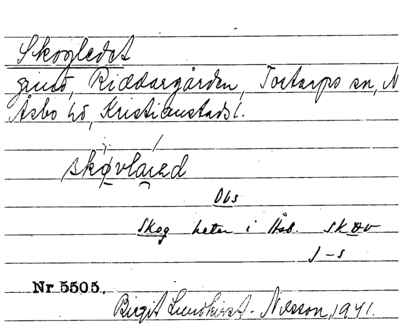 Skogledet
grind, Riddaregården, Torrarps sn, N
Åsbo hd, Kristianstads l.
skǫvlaɪed
Obs
Skog heter i Åsb. skov
J-s
Nr 5505.
Birgit Lundkvist-Nilsson, 1941.